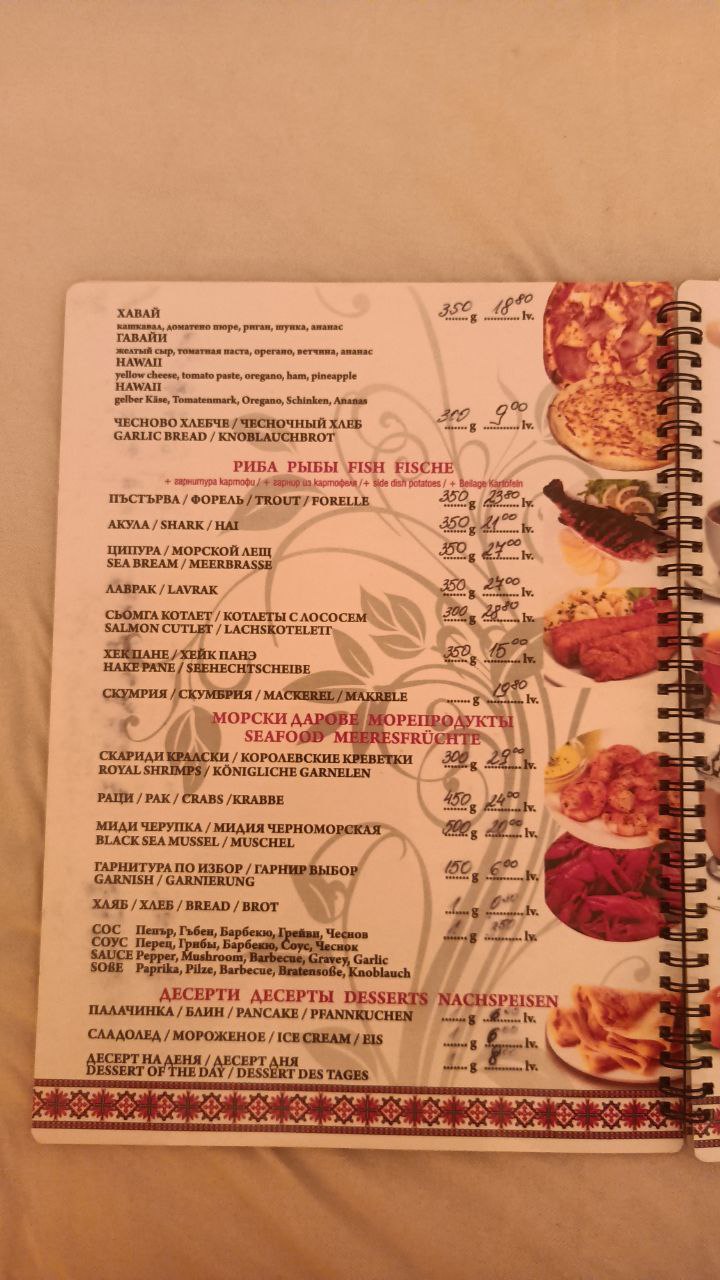 ХАВАЙ 350 g 18 80 lv.
кашкавал, доматено пюре, риган, шунка, ананас
ГАВАЙИ
желтый сыр, томатная паста, орегано, ветчина, ананас
HAWAII
yellow cheese, tomato paste, oregano, ham, pineapple
HAWAII
gelber Käse, Tomatenmark, Oregano, Schinken, Ananas
ЧЕСНОВО ХЛЕБЧЕ / ЧЕСНОЧНЫЙ ХЛЕБ 300 g 9 00 lv.
GARLIC BREAD / KNOBLAUCHBROT
РИБА РЫБЫ FISH FISCHE
+ гарнитура картофи / + гарнир из картофеля / + side dish potatoes / + Beilage Kartofeln
ПЪСТЪРВА / ФОРЕЛЬ / TROUT / FORELLE 350 g 23 80 lv.
АКУЛА / SHARK / HAI 350 g 21 00 lv.
ЦИПУРА / МОРСКОЙ ЛЕЩ 350 g 27 00 lv.
SEA BREAM / MEERBRASSE
ЛАВРАК / LAVRAK 350 g 27 00 lv.
СЬОМГА КОТЛЕТ / КОТЛЕТЫ С ЛОСОСЕМ 300 g 28 80 lv.
SALMON CUTLET / LACHSKOTELETT
ХЕК ПАНЕ / ХЕЙК ПАНЭ 350 g 15 00 lv.
HAKE PANE / SEEHECHTSCHEIBE
СКУМРИЯ / СКУМБРИЯ / MACKEREL / MAKRELE g 19 80 lv.
МОРСКИ ДАРОВЕ МОРЕПРОДУКТЫ
SEAFOOD MEERESFRÜCHTE
СКАРИДИ КРАЛСКИ / КОРОЛЕВСКИЕ КРЕВЕТКИ 300 g 29 00 lv.
ROYAL SHRIMPS / KÖNIGLICHE GARNELEN
РАЦИ / РАК / CRABS /KRABBE 450 g 24 00 lv.
МИДИ ЧЕРУПКА / МИДИЯ ЧЕРНОМОРСКАЯ 500 g 20 00 lv.
BLACK SEA MUSSEL / MUSCHEL
ГАРНИТУРА ПО ИЗБОР / ГАРНИР ВЫБОР 150 g 6 00 lv.
GARNISH / GARNIERUNG
ХЛЯБ / ХЛЕБ / BREAD / BROT 1 g lv.
СОС Пепър, Гъбен, Барбекю, Грейви, Чеснов 1 g lv.
СОУС Перец, Грибы, Барбекю, Соус, Чеснок
SAUCE Pepper, Mushroom, Barbecue, Gravey, Garlic
SOßE Paprika, Pilze, Barbecue, Bratensoße, Knoblauch
ДЕСЕРТИ ДЕСЕРТЫ DESSERTS NACHSPEISEN
ПАЛАЧИНКА / БЛИН / PANCAKE / PFANNKUCHEN g lv.
СЛАДОЛЕД / МОРОЖЕНОЕ / ICE CREAM / EIS g 6 lv.
ДЕСЕРТ НА ДЕНЯ / ДЕСЕРТ ДНЯ g 8 lv.
DESSERT OF THE DAY / DESSERT DES TAGES